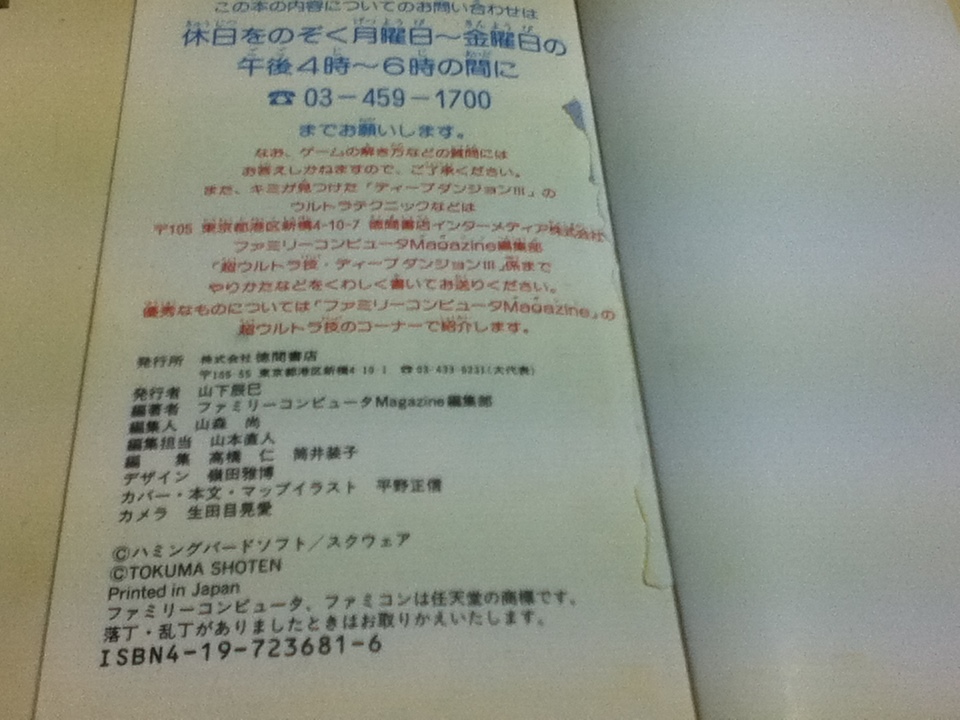 この本の内容についてのお問い合わせは
休日をのぞく月曜日～金曜日の
午後4時～6時の間に
☎ 03－459－1700
までお願いします。
なお、ゲームの解き方などの質問には
お答えしかねますので、ご了承ください。
また、キミが見つけた「ディープダンジョンIII」の
ウルトラテクニックなどは
〒105 東京都港区新橋4-10-7 徳間書店インターメディア株式会社
ファミリーコンピュータMagazine編集部
「超ウルトラ技・ディープダンジョンIII」係まで
やりかたなどをくわしく書いてお送りください。
優秀なものについては「ファミリーコンピュータMagazine」の
超ウルトラ技のコーナーで紹介します。
発行所 株式会社 徳間書店
〒105-55 東京都港区新橋4-10-1 ☎03-433-6231(大代表)
発行者 山下辰巳
編著者 ファミリーコンピュータMagazine編集部
編集人 山森 尚
編集担当 山本直人
編 集 高橋 仁 筒井装子
デザイン 嶺田雅博
カバー・本文・マップイラスト 平野正信
カメラ 生田目晃愛
©ハミングバードソフト／スクウェア
©TOKUMA SHOTEN
Printed in Japan
ファミリーコンピュータ、ファミコンは任天堂の商標です。
落丁・乱丁がありましたときはお取りかえいたします。
ISBN4-19-723681-6